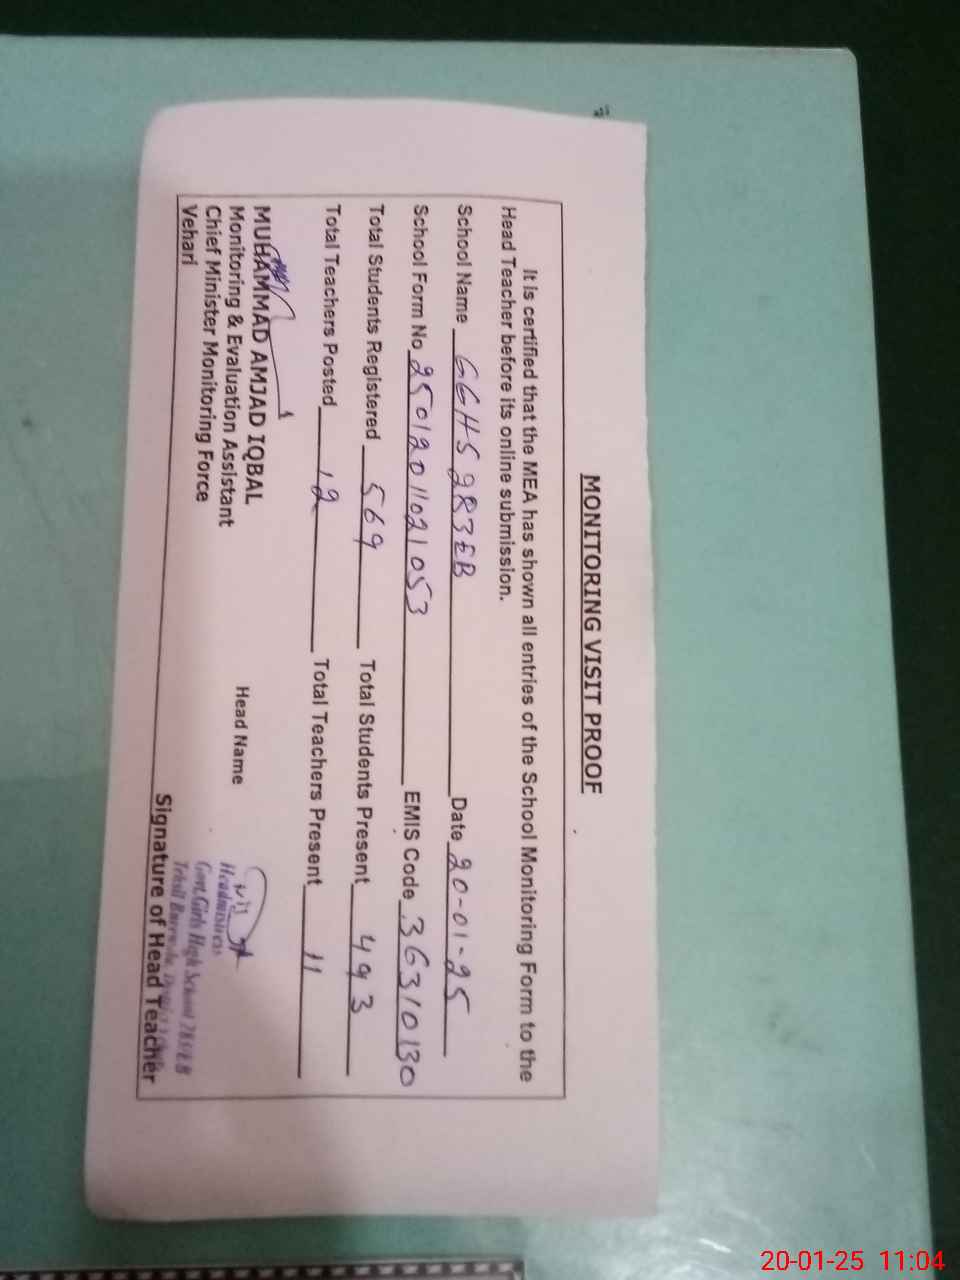 MONITORING VISIT PROOF
It is certified that the MEA has shown all entries of the School Monitoring Form to the
Head Teacher before its online submission.
School Name GGHS 283EB Date 20-01-25
School Form No 2501201102 1053 EMIS Code 36310130
Total Students Registered 569 Total Students Present 493
Total Teachers Posted 12 Total Teachers Present 11
MUHAMMAD AMJAD IQBAL
Monitoring & Evaluation Assistant
Chief Minister Monitoring Force
Vehari
Head Name
Headmistress
Govt. Girls High School 283/EB
Tehsil
Signature of Head Teacher
20-01-25 11:04